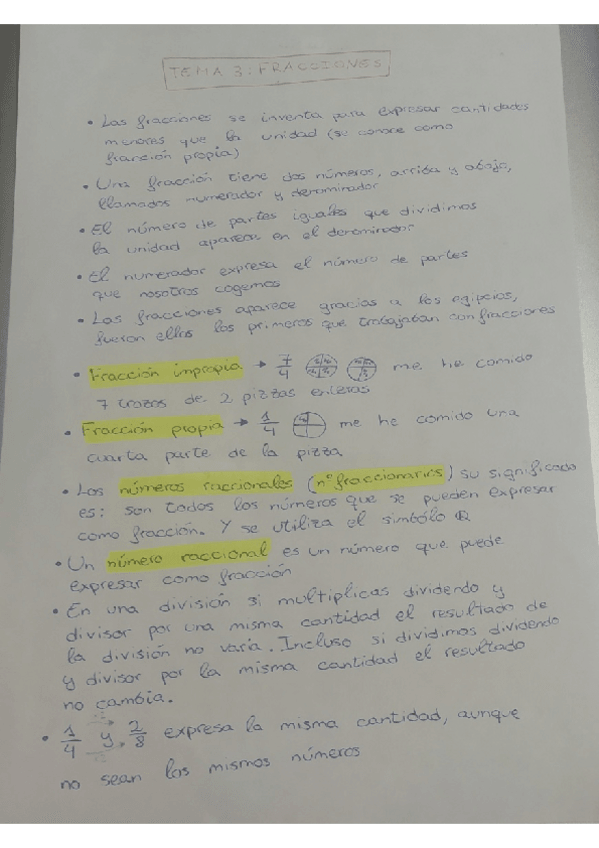 TEMA 3: FRACCIONES
• Las fracciones se inventa para expresar cantidades
menores que la unidad (se conoce como
fracción propia)
• Una fracción tiene dos números, arriba y abajo,
llamados numerador y denominador
• El número de partes iguales que dividimos
la unidad aparece en el denominador
• El numerador expresa el número de partes
que nosotros cogemos
• Las fracciones aparece gracias a los egipcios,
fueron ellos los primeros que trabajaban con fracciones
• Fracción impropia → 7/4 me he comido
7 trozos de 2 pizzas enteras
• Fracción propia → 1/4 me he comido una
cuarta parte de la pizza
• Los números racionales (nº fraccionarios) su significado
es: son todos los números que se pueden expresar
como fracción. Y se utiliza el símbolo Q
• Un número racional es un número que puede
expresar como fracción
• En una división si multiplicas dividendo y
divisor por una misma cantidad el resultado de
la división no varía. Incluso si dividimos dividendo
y divisor por la misma cantidad el resultado
no cambia.
• 1/4 y 2/8 expresa la misma cantidad, aunque
no sean los mismos números